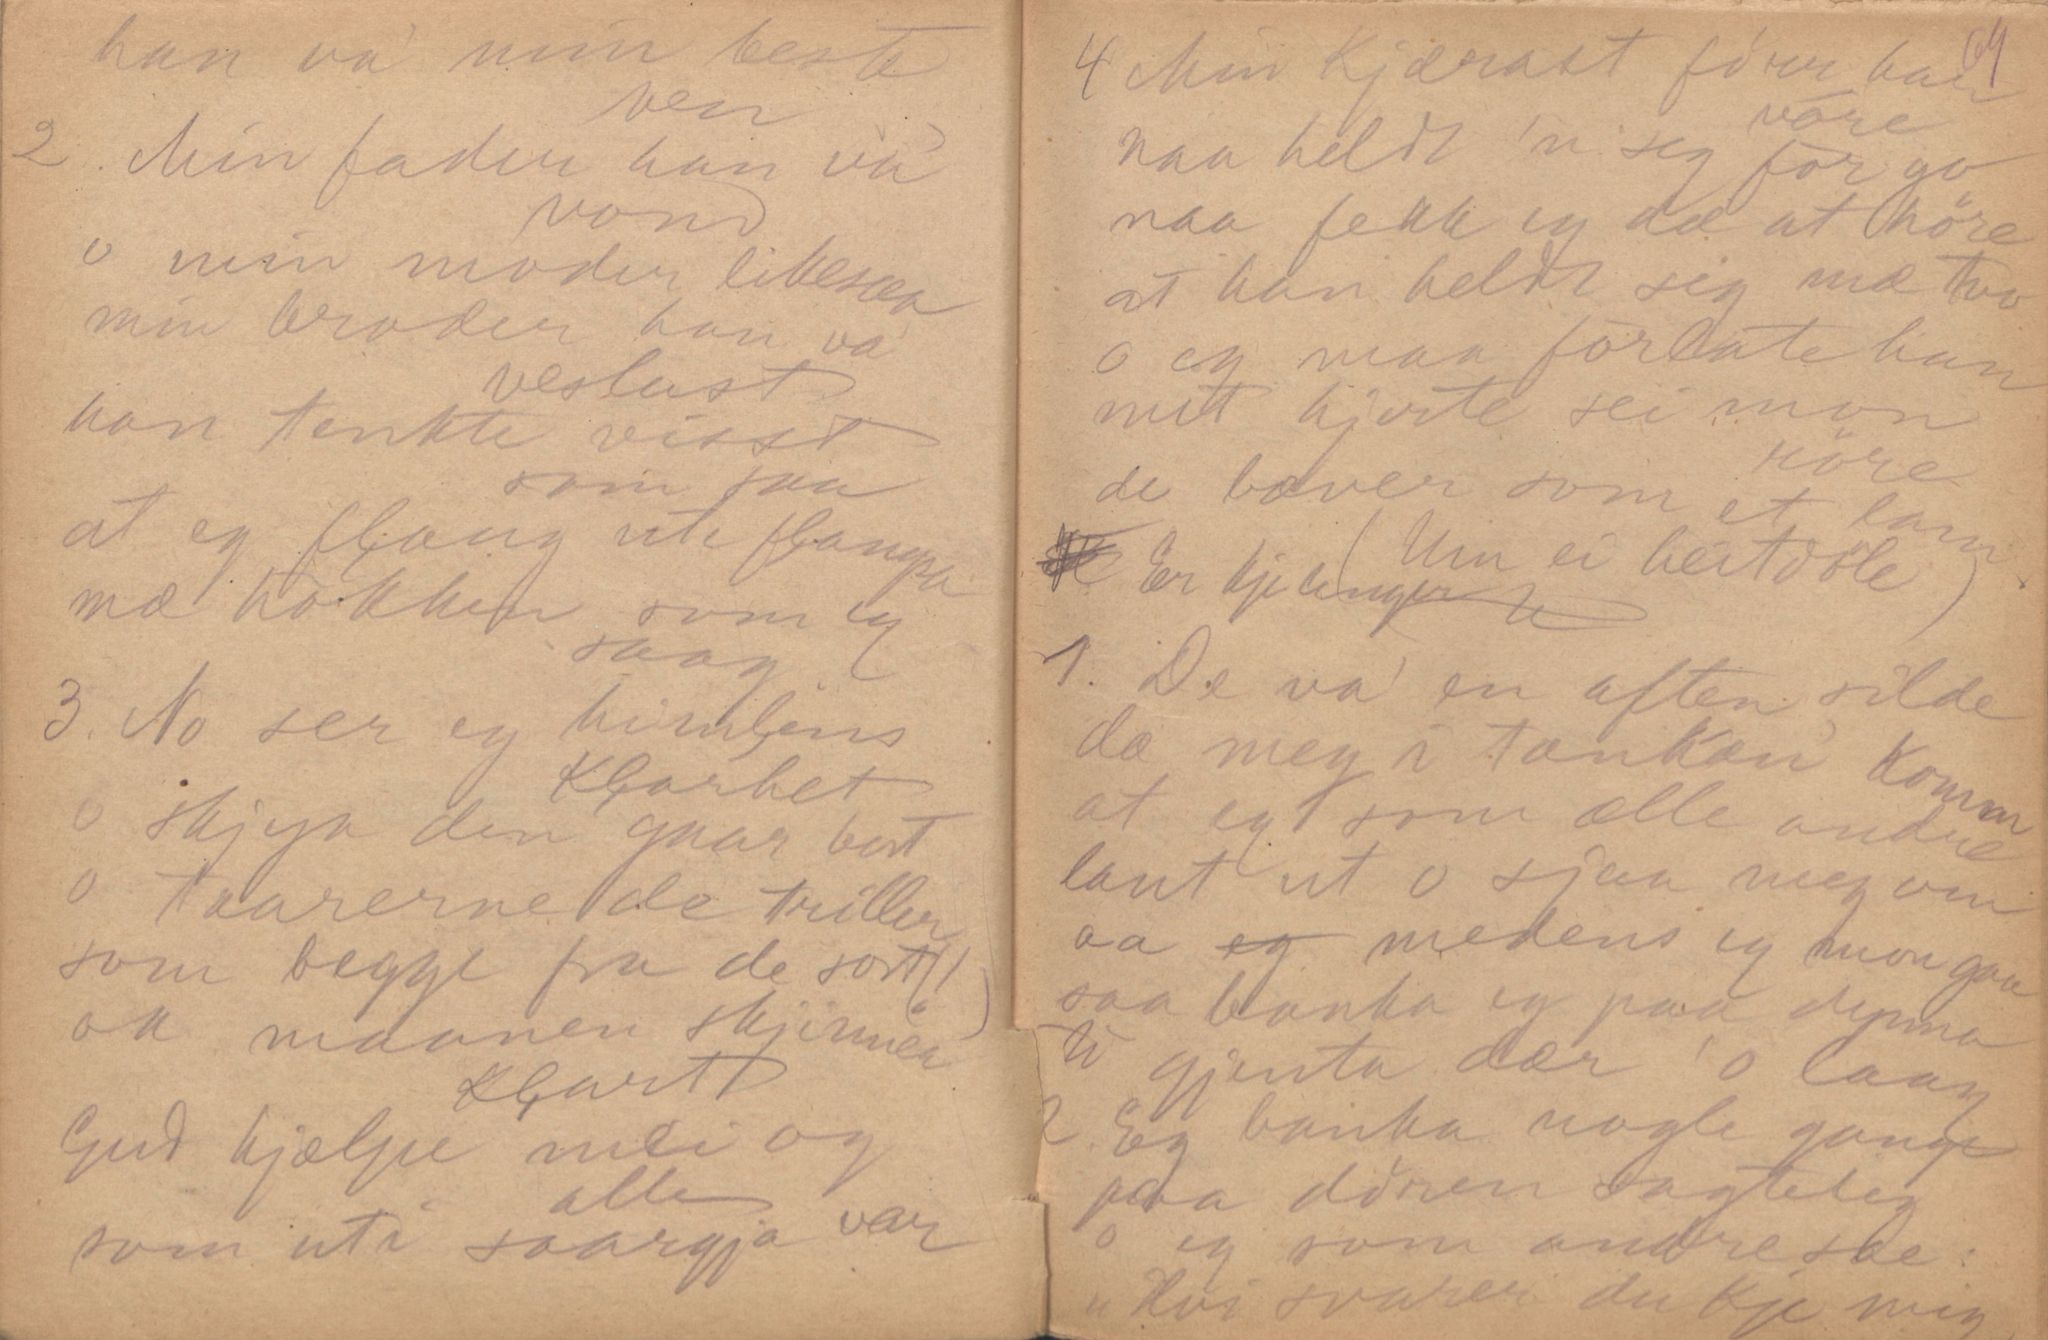 han va' min beste
ven
2. Min fader han va'
vond
o min moder likesaa
min broder han va'
veslast
han tenkte visst
som saa
at eg flaug ute flaugsa
mæ hökken som eg
saag
3. No ser eg himlens
Klarhet
o skjya den gaar bort
o taarerne de triller
som begge fra de sort (!)
ok maanen skjinner
Klart
Gud hjælpe mei og
alle
som uti saargja var
64
4 Min Kjærast förr han
vöre
naa heldt 'n seg för go
naa fekk eg dæ at höre
at han heldt sig mæ tvo
o eg maa förlate han
mit hjerte sei mon
röre
de bæver som et lam
(Um ei heitdöle)
Er kje lenger
1. De va' en aften silde
da meg i tankan' Komm
at eg som alle andre
laut ut o sjaa meg om
aa eg medens eg mon gaa
saa banka eg paa dynna
ti gjenta dær 'o laag
2. Eg banka nogle gange
paa dören sagteleg
o eg som andre sae:
"Kvi svarer du kje mig